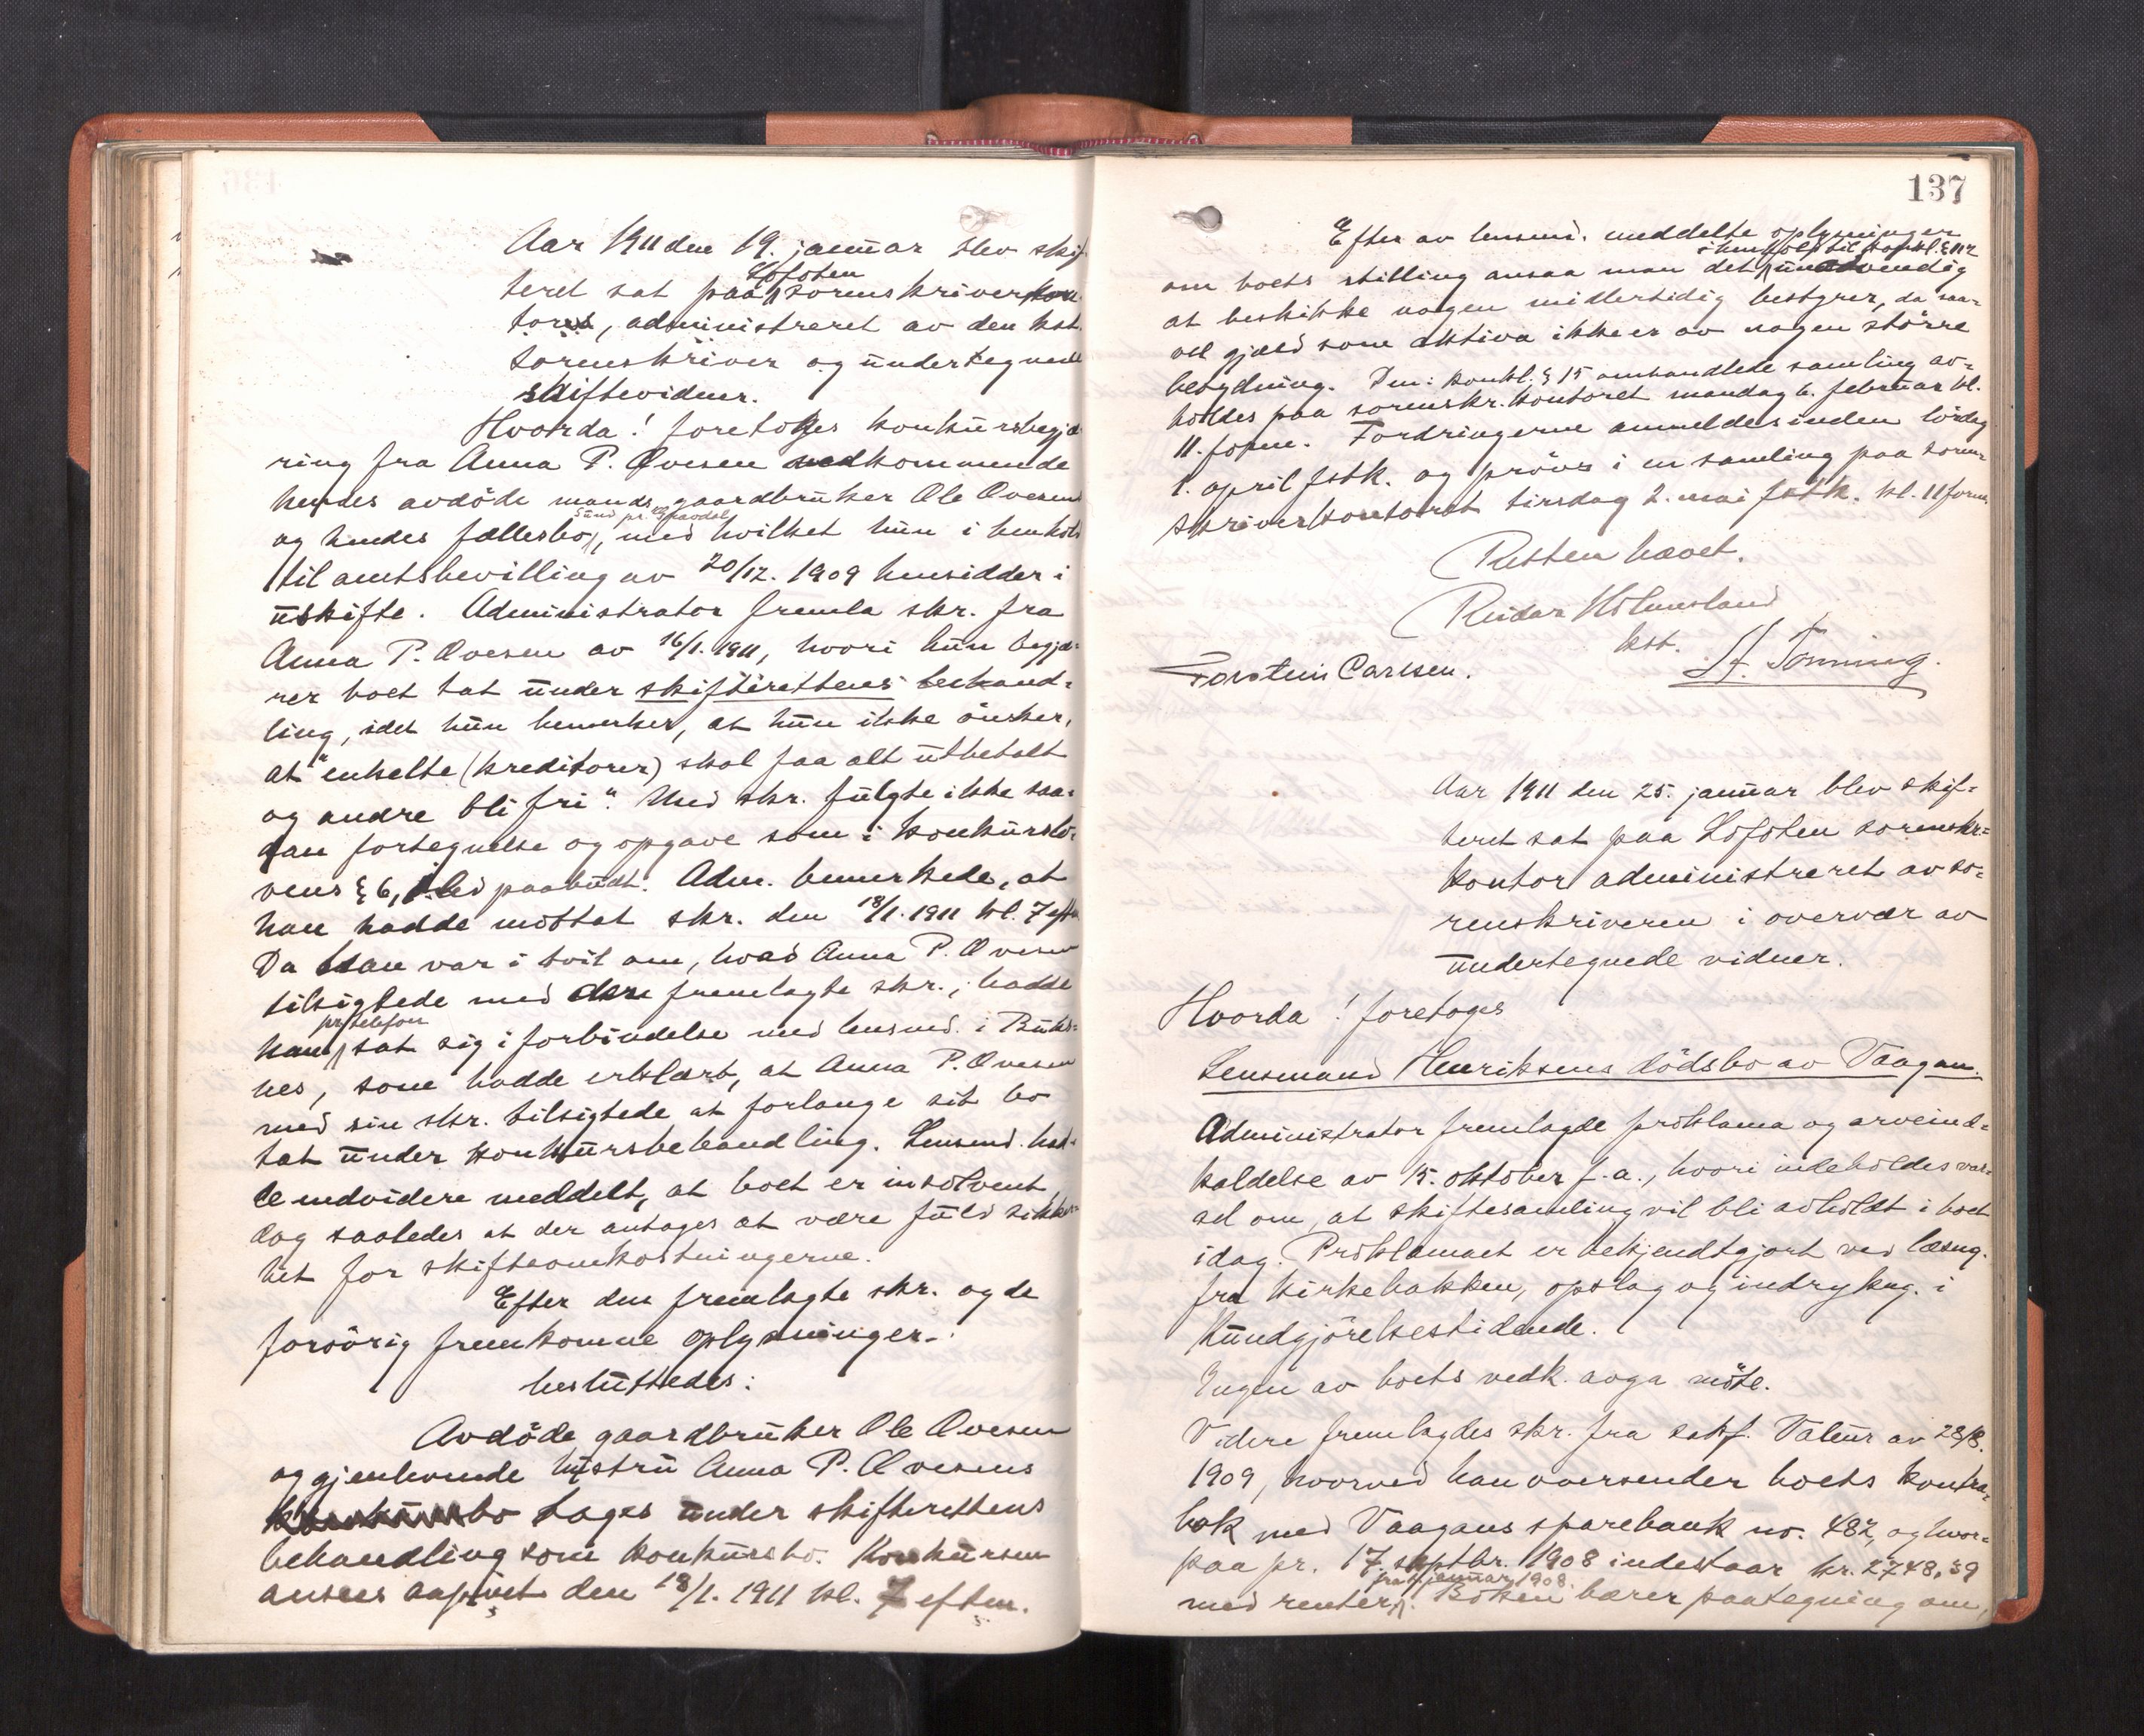 Aar 1911 den 19. januar blev skif-
teret sat paa Lofoten sorenskriverkon-
tor, administreret av den kst.
sorenskriver og undertegnede
skiftevidner.
Hvorda! foretoges konkursbegjæ-
ring fra Anna P. Ovesen vedkommende
hendes avdöde mands gaardbruker Ole Ovesens
og hendes fællesbo, Sund pr. med hvilket hun i henhold
til amtsbevilling av 20/12. 1909 hensidder i
uskifte. Administrator fremla skr. fra
Anna P. Ovesen av 16/1. 1911, hvori hun begjæ-
rer boet tat under skifterettens behand-
ling, idet hun bemerker, at hun ikke önsker,
at "enkelte (kreditorer) skal faa alt utbetalt
og andre bli fri". Med skr. fulgte ikke saa-
dan fortegnelse og opgave som i konkurslo-
vens § 6, 1. led paabudt. Adm. bemerkede, at
han hadde mottat skr. den 18/1. 1911 kl. 7 eftm.
Da han var i tvil om, hvad Anna P. Ovesen
tilsigtede med den fremlagte skr., hadde
han pr. telefon sat sig i forbindelse med lensmd. i Buks-
nes, som hadde erklært, at Anna P. Ovesen
med sin skr. tilsigtede at forlange sit bo
tat under konkursbehandling. Lensmd. had-
de endvidere meddelt, at boet er insolvent,
dog saaledes at der antages at være fuld sikker-
het for skifteomkostningerne.
Efter den fremlagte skr. og de
forövrig fremkomne oplysninger
besluttedes:
Avdöde gaardbruker Ole Ovesen
og gjenlevende hustru Anna P. Ovesens
bo tages under skifterettens
behandling som konkursbo. Konkursen
ansees aapnet den 18/1. 1911 kl. 7 eftm.
137
Efter av lensmd. meddelte oplysninger
om boets stilling ansaa man det i henhold til konkl. § 112 unödvendig
at beskikke nogen midlertidig bestyrer, da saa-
vel gjæld som aktiva ikke er av nogen större
betydning. Den i konkl. § 15 omhandlede samling av-
holdes paa sorenskr.kontoret mandag 6. februar kl.
11. form. Fordringerne anmeldes inden lördag
1. april fstk. og pröves i en samling paa soren-
skriverkontoret tirsdag 2. mai fstk. kl. 11 form.
Retten hævet.
Reidar Holmesland
kst.
Torstein Carlsen. St. Tönning.
Aar 1911 den 25. januar blev skif-
teret sat paa Lofoten sorenskr.-
kontor administreret av so-
renskriveren i overvær av
undertegnede vidner.
Hvorda! foretoges
Lensmand Henriksens dödsbo av Vaagan.
Administrator fremlagde proklama og arveind-
kaldelse av 15. oktober f.a., hvori indeholdes var-
sel om, at skiftesamling vil bli avholdt i boet
idag. Proklamaet er bekjendtgjort ved læsng.
fra kirkebakken, opslag og indrykng. i
Kundgjörelsestidende.
Ingen av boets vedk. avga möte.
Videre fremlagdes skr. fra sakf. Valeur av 28/8.
1909, hvorved han oversender boets kontra-
bok med Vaagans sparebank no. 487, og hvor-
paa pr. 17. septbr. 1908 indestaar kr. 2748,39
med renter fra 1. januar 1908. Boken bærer paategning om,